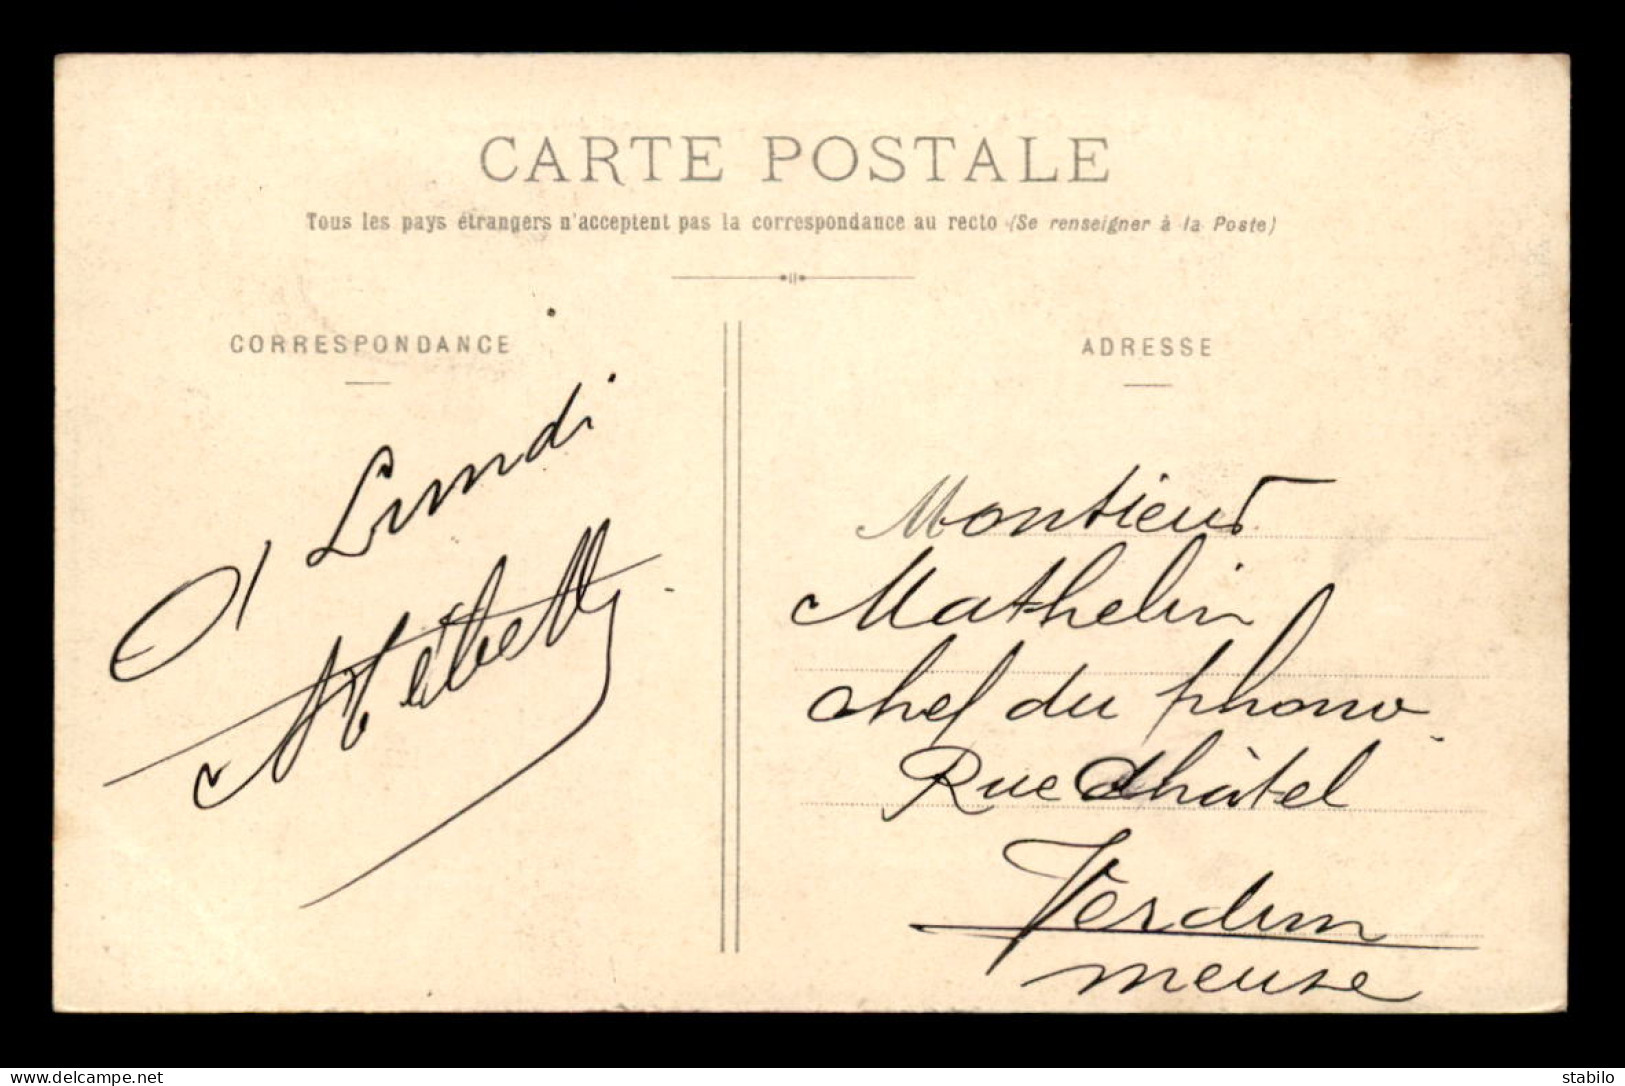 CARTE POSTALE
Tous les pays étrangers n'acceptent pas la correspondance au recto (Se renseigner à la Poste)
CORRESPONDANCE
à Lundi
ADRESSE
Monsieur
Mathelin
chef du phono
Rue Châtel
Verdun
Meuse
www.delcampe.net
stabilo